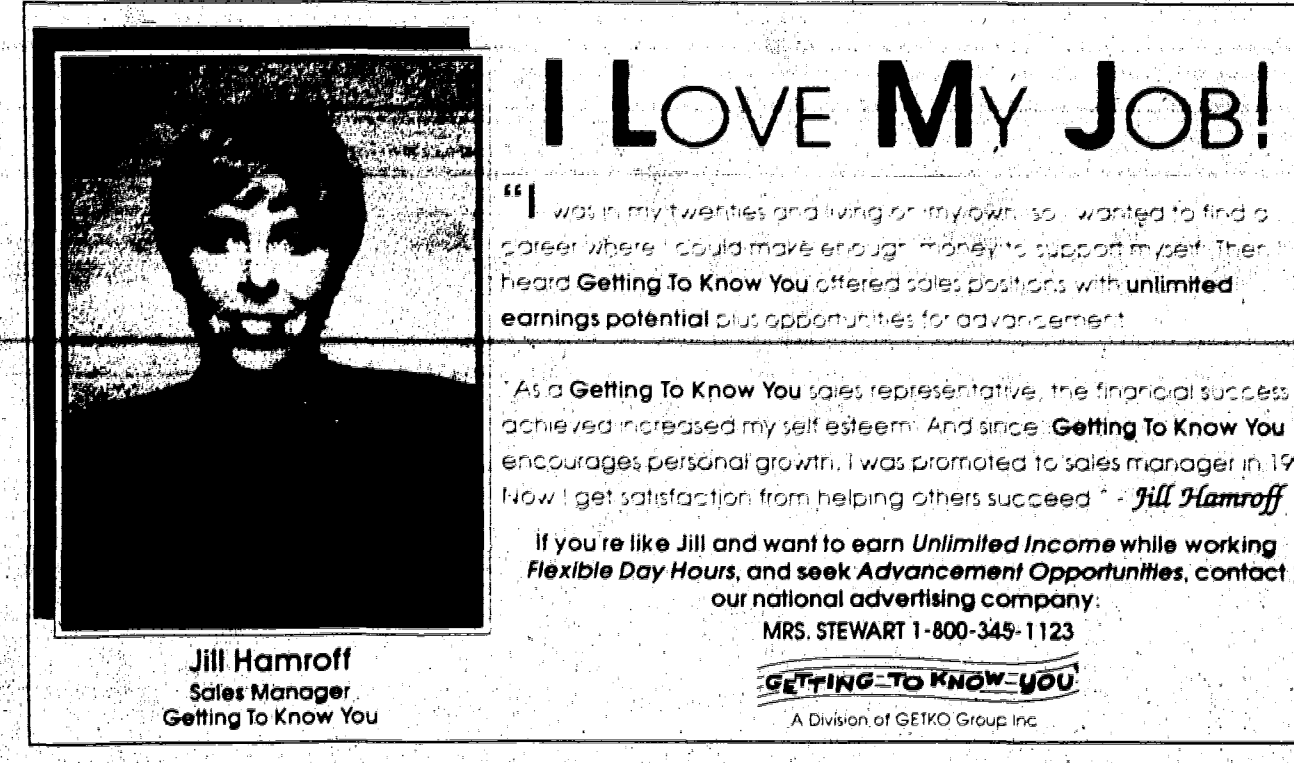 I LOVE MY JOB!
"I was in my twenties and living on my own, so I wanted to find a
career where I could make enough money to support myself. Then I
heard Getting To Know You offered sales positions with unlimited
earnings potential plus opportunities for advancement.
"As a Getting To Know You sales representative, the financial success
achieved increased my self esteem. And since Getting To Know You
encourages personal growth, I was promoted to sales manager in 19
Now I get satisfaction from helping others succeed." - Jill Hamroff
If you're like Jill and want to earn Unlimited Income while working
Flexible Day Hours, and seek Advancement Opportunities, contact
our national advertising company:
MRS. STEWART 1-800-345-1123
GETTING-TO KNOW-YOU
A Division of GETKO Group Inc.
Jill Hamroff
Sales Manager
Getting To Know You